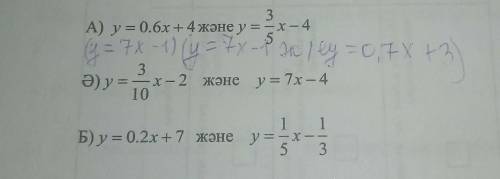 А) y = 0.6x + 4 және y = 3/5 x − 4
(y = 7x − 1) (y = 7x − y = 0,7x + 3)
Ә) y = 3/10 x − 2 және y = 7x − 4
Б) y = 0.2x + 7 және y = 1/5 x − 1/3